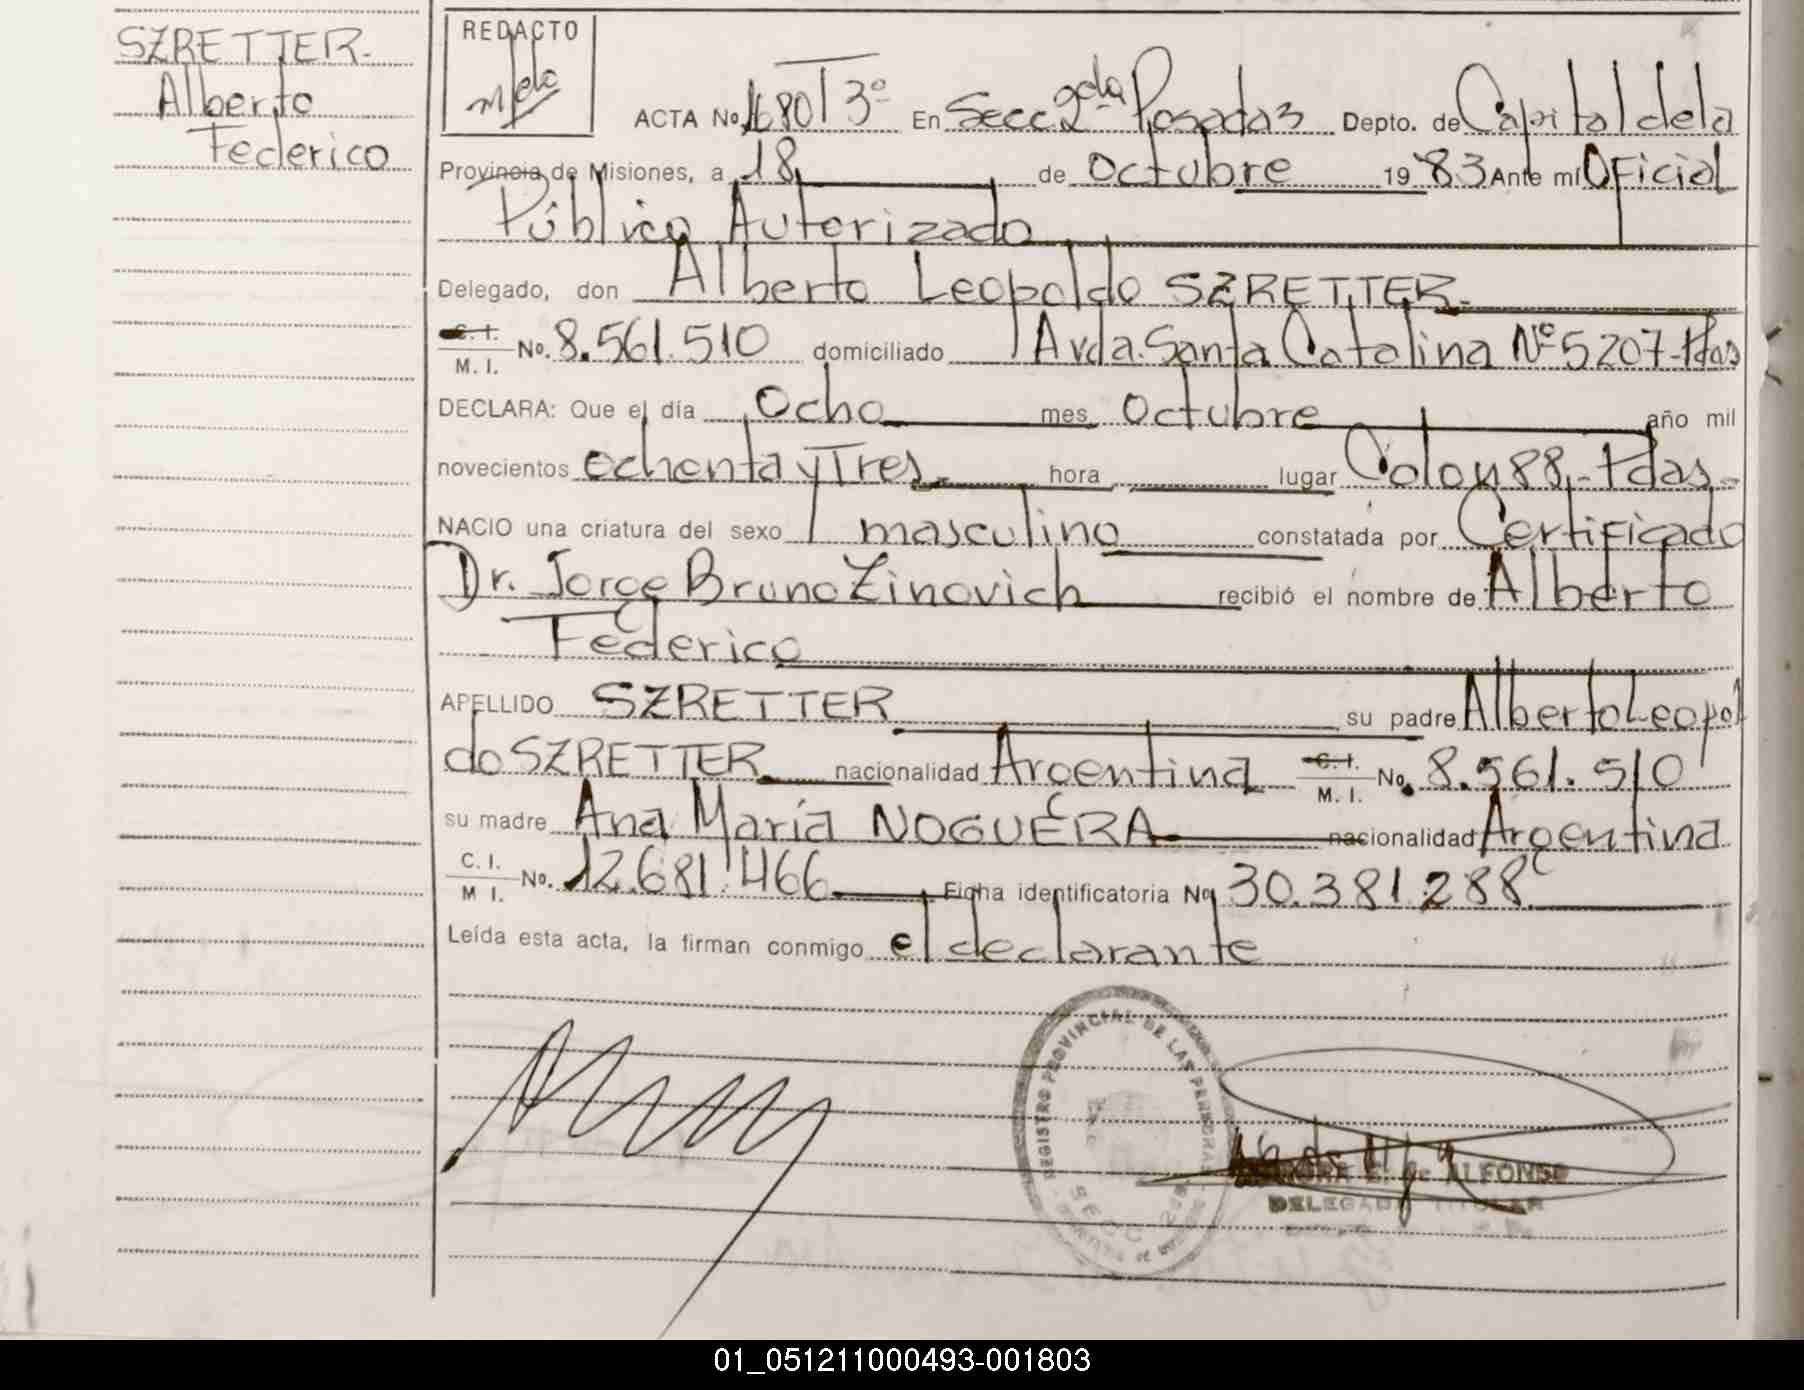 SZRETTER.
Alberto
Federico
REDACTO
ACTA No. 1680 T 3º En Secc 2da Posadas Depto. de Capital de la
Provincia de Misiones, a 18 de Octubre 19 83 Ante mí Oficial
Público Autorizado
Delegado, don Alberto Leopoldo SZRETTER.
C. I.
M. I. No. 8.561.510 domiciliado Avda. Santa Catalina Nº 5207-Pdas
DECLARA: Que el día Ocho mes Octubre año mil
novecientos ochenta y Tres hora lugar Colon 88,-Pdas.
NACIO una criatura del sexo masculino constatada por Certificado
Dr. Jorge Bruno Zinovich recibió el nombre de Alberto
Federico
APELLIDO SZRETTER su padre Alberto Leopol
do SZRETTER nacionalidad Argentina C. I. M. I. No. 8.561.510
su madre Ana María NOGUERA nacionalidad Argentina
C. I.
M I. No. 12.681.466 Ficha identificatoria No 30.381.288
Leída esta acta, la firman conmigo el declarante
REGISTRO PROVINCIAL DE LAS PERSONAS
SECC. 2
E. de ALFONSO
DELEGADA TITULAR
01_051211000493-001803